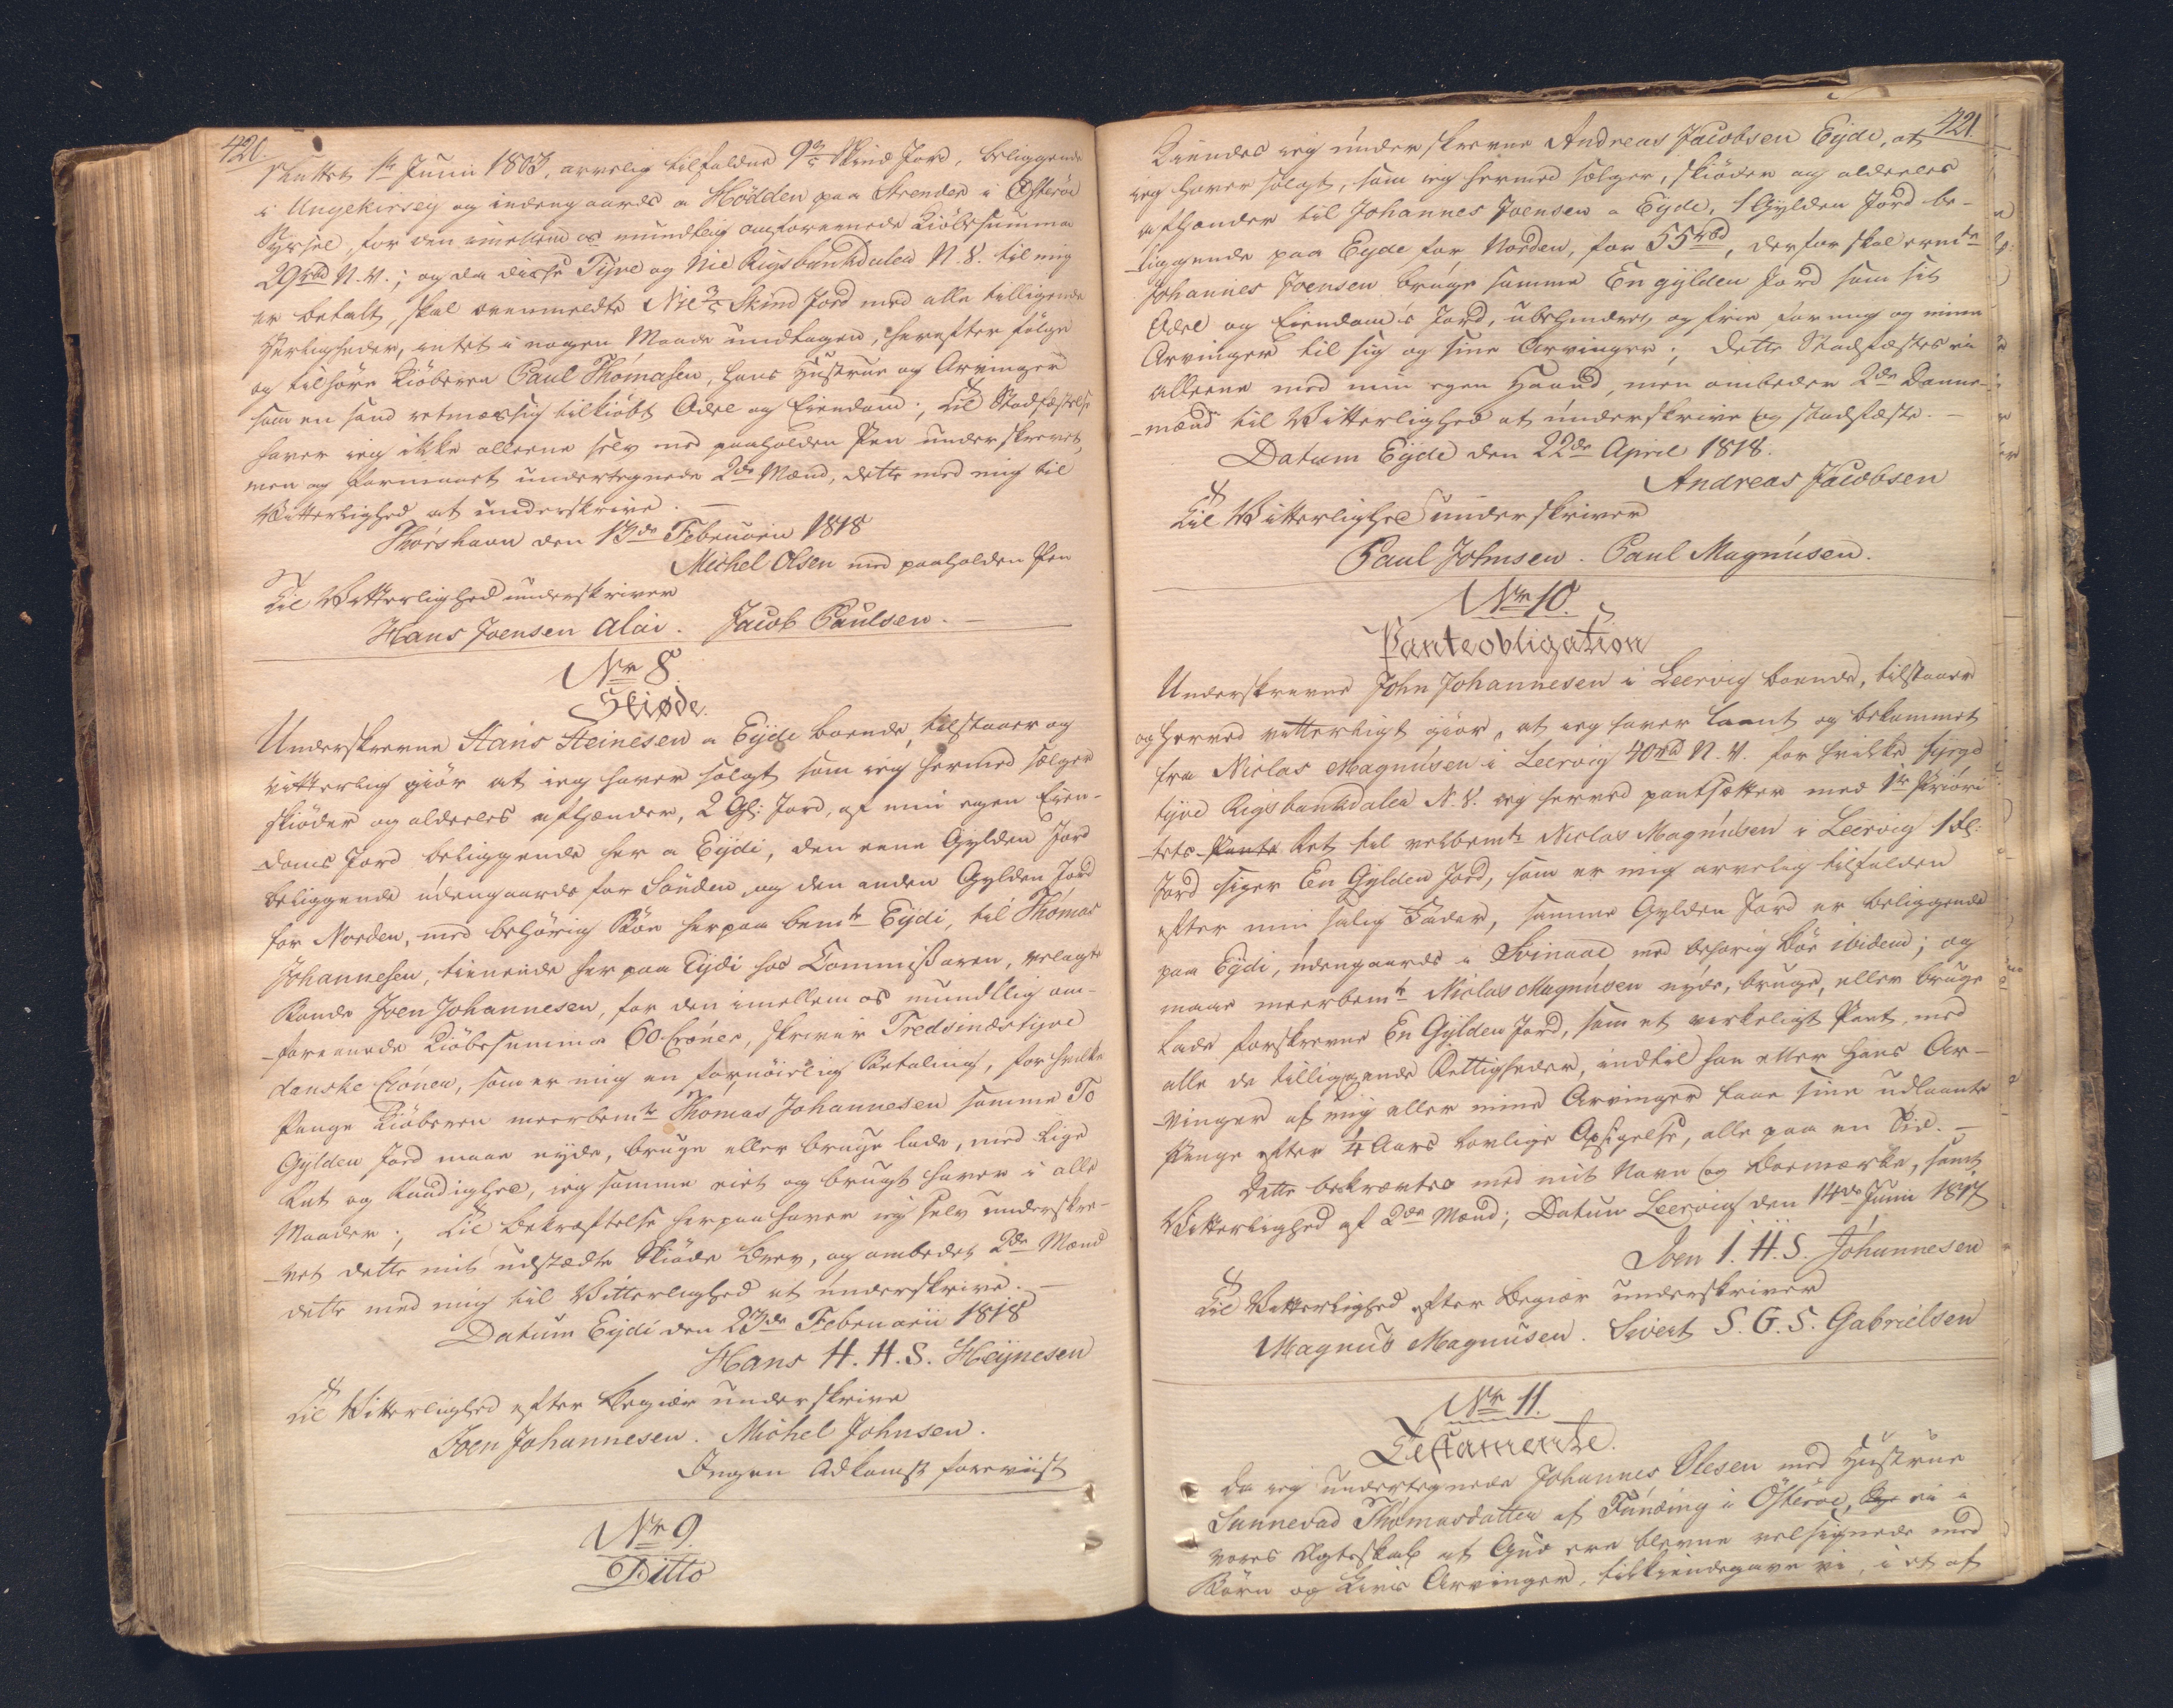 420.
sluttet 1te Junii 1803, arvelig tilfalden 9 3/5 Skind Jord, beliggende
i Ungekirsey og indengaards a Hødden paa Strender i Østerøe
Syssel, for den imellem os mundtlig omforenede Kiöbesumma
29 rbd N. V.; og da disse Tyve og Nie Rigsbankdaler N. V. til mig
er betalt, skal ovenmeldte Nie 3/5 Skind Jord med alle tilligende
Herligheder, intet i nogen Maade undtagen, herefter følge
og tilhøre Kiöberen Paul Thomasen, hans Hustrue og Arvinger
som en sand retmæssig tilkiøbt Odel og Eiendom; Til Stadfæstelse
haver ieg ikke alleene selv med paaholden Pen underskrevet,
men og formaaet undertegnede 2de Mænd, dette med mig til
Vitterlighed at underskrive. —
Thorshavn den 13de Februarii 1818
Michel Olsen med paaholden Pen
Til Vitterlighed underskriver
Hans Joensen Alai. Jacob Paulsen. —
No 8.
Skiøde.
Underskrevne Hans Heinesen a Eyde boende, tilstaaer og
vitterlig giör at ieg haver solgt som ieg hermed sælger
skiøder og aldeeles afhænder, 2 Gl: Jord, af min egen Eien-
doms Jord beliggende her a Eydi, den eene Gylden Jord
beliggende udengaards for Sönden og den anden Gylden Jord
for Norden, med behörig Böe herpaa bemte Eydi, til Thomas
Johannesen, tienende her paa Eydi hos Commissaren, velagte
Bonde Joen Johannesen, for den imellem os mundtlig om-
foreenede Kiöbesumma 60 Croner, skriver Tredsindstyve
danske Croner, som er mig en fornöielig Betaling, for hvilke
Penge Kiöberen meerbemte Thomas Johannesen samme To
Gylden Jord maae nyde, bruge eller bruge lade, med Lige
Ret og Raadighed, ieg samme eiet og brugt haver i alle
Maader; Til Bekræftelse herpaa haver ieg selv underskre-
vet dette mit udstædte Skiöde Brev, og ombedet 2de Mænd
dette med mig til Vitterlighed at underskrive. —
Datum Eydi den 23de Februarii 1818
Hans H. H. S. Heynesen
Til Vitterlighed efter Begiær underskrive
Joen Johannesen. Michel Johnsen.
Ingen Adkomst foreviist
No 9.
Ditto
421.
Kiendes ieg underskrevne Andreas Jacobsen Eyde, at
ieg haver solgt, som ieg hermed sælger, skiöder og aldeeles
afhænder til Johannes Joensen a Eyde, 1 Gylden Jord be-
liggende paa Eyde for Norden, for 55 rbd, derfor skal
Johannes Joensen bruge samme En gylden Jord som sit
Odel og Eiendoms Jord, ubehindret og frie for mig og mine
Arvinger til sig og sine Arvinger; dette Stadfæstes ei
alleene med min egen Haand, men ombeder 2de Danne-
mænd til Vitterlighed at underskrive og stadfæste. —
Datum Eyde den 22de April 1818.
Andreas Jacobsen
Til Vitterlighed underskriver
Paul Johnsen. Paul Magnusen.
No 10.
Panteobligation
Underskrevne John Johannesen i Leervig boende, tilstaaer
og herved vitterligt giör, at ieg haver laant og bekommet
fra Niclas Magnusen i Leervig 40 rbd N. V. for hvilke fyrge
tyve Rigsbankdaler N. V. ieg herved pantsætter med 1te Priori
tets Pante Ret til velbemte Niclas Magnusen i Leervig 1 Gl:
Jord siger En Gylden Jord, som er mig arvelig tilfalden
efter min salig Fader, samme Gylden Jord er beliggende
paa Eydi, udengaards i Svinaae med behørig Böe ibidem; og
maae meerbemte Niclas Magnusen nyde, bruge, eller bruge
lade forskrevne En Gylden Jord, som et verkeligt Pant, med
alle de tilliggende Rettigheder, indtil han eller hans Ar-
vinger af mig eller mine Arvinger faae sine udlaante
Penge efter 1/4 Aars lovlige Opsigelse, alle paa en Tid. —
Dette bekræftes med mit Navn og Boemærke, samt
Vitterlighed af 2de Mænd; Datum Leervig den 14de Junii 1817
Joen I. H. S. Johannesen
Til Vitterlighed efter Begiær underskriver
Magnus Magnusen. Sivert S. G. S. Gabrielsen
No 11.
Testamente.
Da ieg undertegnede Johannes Olesen med Hustrue
Sunnevad Thomasdatter af Funding i Østerøe, ei i
vores Ægteskab af Gud ere blevne velsignede med
Börn og Livs Arvinger, tilkiendegave vi, i et af